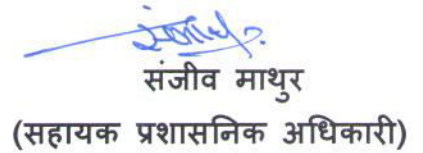 संजीव माथुर
(सहायक प्रशासनिक अधिकारी)